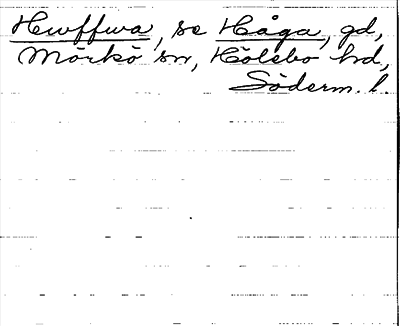 Hwffwa, se Håga, gd,
Mörkö sn, Hölebo hd,
Söderm. l.